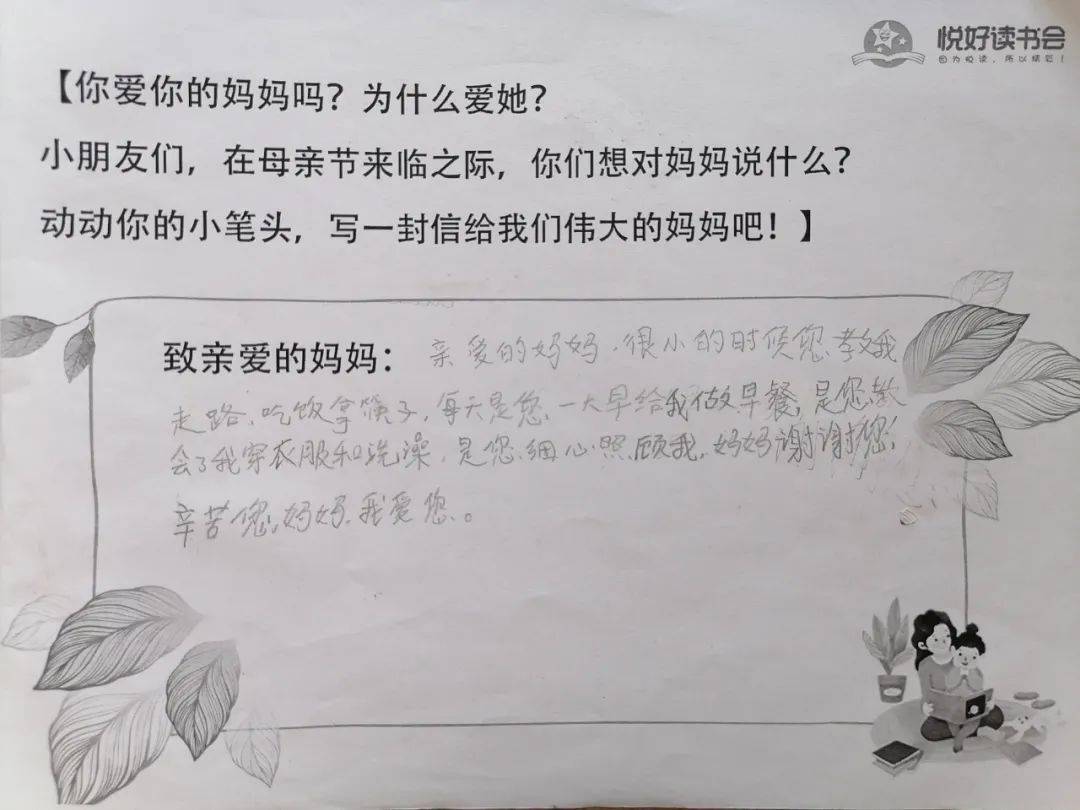 悦好读书会
因为悦读，所以精彩！
【你爱你的妈妈吗？为什么爱她？
小朋友们，在母亲节来临之际，你们想对妈妈说什么？
动动你的小笔头，写一封信给我们伟大的妈妈吧！】
致亲爱的妈妈：亲爱的妈妈，很小的时候您教我
走路、吃饭拿筷子，每天是您一大早给我做早餐，是您教
会了我穿衣服和洗澡，是您细心照顾我，妈妈谢谢您，
辛苦您，妈妈，我爱您。